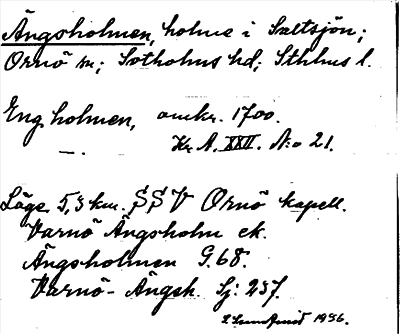 Ängsholmen, holme i Saltsjön;
Ornö sn; Sotholms hd; Sthlms l.
Engholmen, omkr. 1700.
—. Kr. A. XXII. N:o 21.
Läge 5,3 km. SSV Ornö kapell.
Varnö Ängsholm ek.
Ängsholmen G. 68.
Varnö-Ängsh. Sj: 237.
1936.